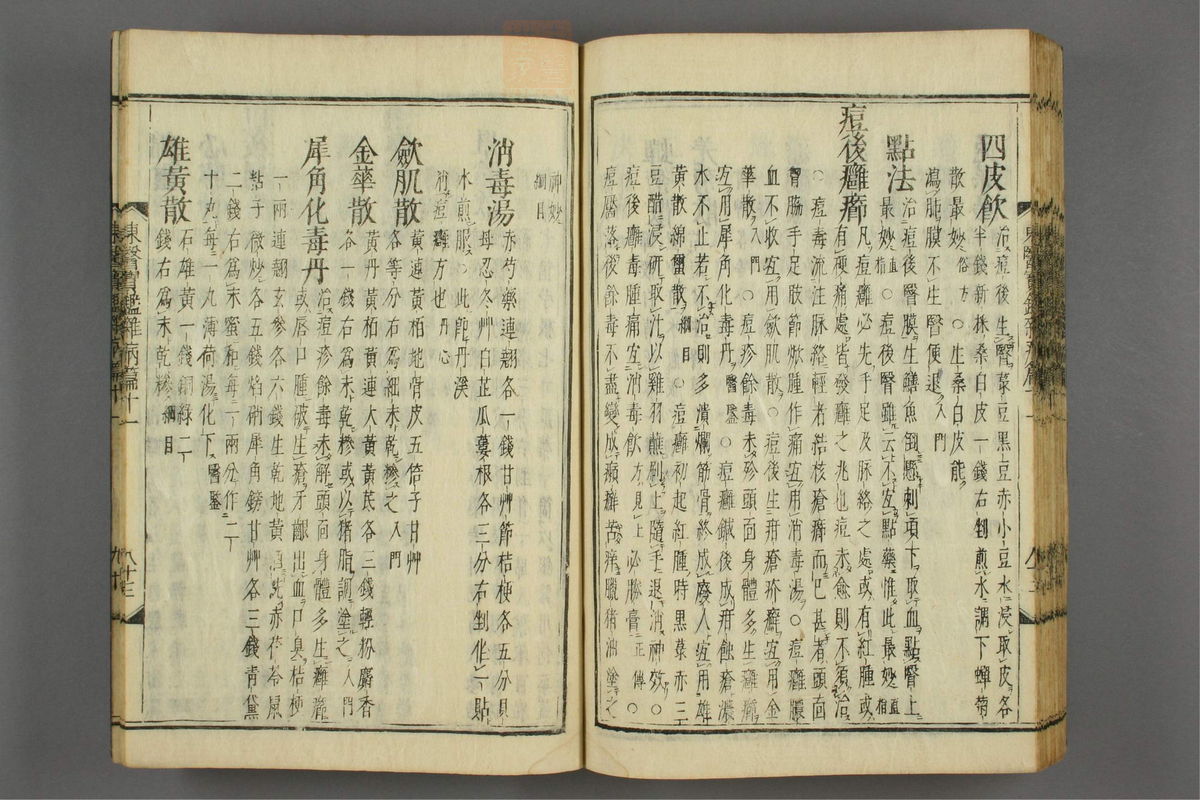 四皮飲 治痘後生瞖菉豆黑豆赤小豆水浸取皮各
半錢新採桑白皮一錢右剉煎水調下蟬菊
散最妙俗方○生桑白皮能
瀉肫膜不生瞖便退入門
點法 治痘後瞖膜生鱔魚倒懸刺項下取血點瞖上
最妙直指○痘後瞖雖云不宜點藥惟此最妙直指
痘後癰癤 凡痘癰必先手足及脉絡之處或有紅腫或
有硬痛處皆發癰之兆也痘未愈則不須治
○痘毒流注脉絡輕者結核瘡癤而已甚者頭面
胷腸手足肢節焮腫作痛宜用消毒湯○痘癰膿
血不收宜用歛肌散○痘後生疳瘡疥癬宜用金
華散入門○痘疹餘毒未殄頭面身體多生癰癤
宜用犀角化毒丹醫鑑○痘癰鍼後成疳蝕瘡濃
水不止若不治則多潰爛筋骨終成廢人宜用雄
黃散綿蠒散綱目○痘癰初起紅腫時黑菉赤三
豆醋浸研取汁以雞羽蘸刷上隨手退消神效○
痘後癰毒腫痛宜消毒飲方見上必勝膏正傳○
痘靨落後餘毒不盡變成癩癬苦痒臘猪油塗之
神妙
綱目
消毒湯 赤芍藥連翹各一錢甘艸節桔梗各五分貝
母忍冬艸白芷瓜蔞根各三分右剉作一貼
水煎服○此卽丹溪
消痘癰方也丹心
歛肌散 黃連黃栢地骨皮五倍子甘艸
各等分右爲細末乾糝之入門
金華散 黃丹黃栢黃連大黃黃茋各三錢輕粉麝香
各一錢右爲末乾糝或以猪脂調塗之入門
犀角化毒丹 治痘疹餘毒未解頭面身體多生癰癤
或唇口腫破生瘡牙齦出血口臭桔梗
一兩連翹玄參各六錢生乾地黃酒洗赤茯苓鼠
黏子微炒各五錢焰硝犀角鎊甘艸各三錢靑黛
二錢右爲末蜜和每一兩分作二十
丸每一丸薄荷湯化下醫鑑
雄黃散 石雄黃一錢銅綠二
錢右爲末乾糝綱目
東醫寶鑑雜病篇十一